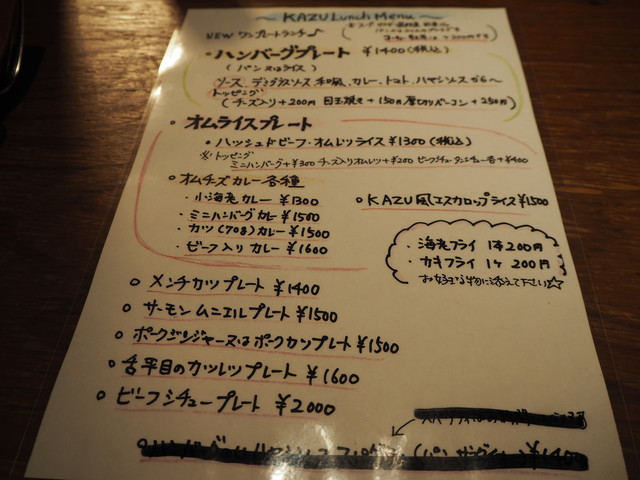 〜 KAZU Lunch Menu 〜
NEW ワンプレートランチ♪
・ハンバーグプレート ¥1400(税込)
(パン又はライス)
ソース、デミグラスソース 和風、カレー、トマト、ハヤシソースから〜
トッピング
(チーズ入り+200円 目玉焼き+150円 厚切りベーコン+250円)
・オムライスプレート
・ハッシュドビーフ・オムレツライス ¥1300(税込)
※トッピング
ミニハンバーグ+¥300 チーズ入りオムレツ+¥200 ビーフシチュー タンシチュー各+¥400
・オムチーズカレー各種
・小海老カレー ¥1300
・ミニハンバーグカレー ¥1500
・カツ(70g)カレー ¥1500
・ビーフ入りカレー ¥1600
○KAZU風エスカロップライス¥1500
・海老フライ 1本200円
・カキフライ 1ケ 200円
お好きな物に添えて下さい☆
○メンチカツプレート ¥1400
○サーモンムニエルプレート ¥1500
○ポークジンジャー又はポークカツプレート ¥1500
○舌平目のカツレツプレート ¥1600
○ビーフシチュープレート ¥2000